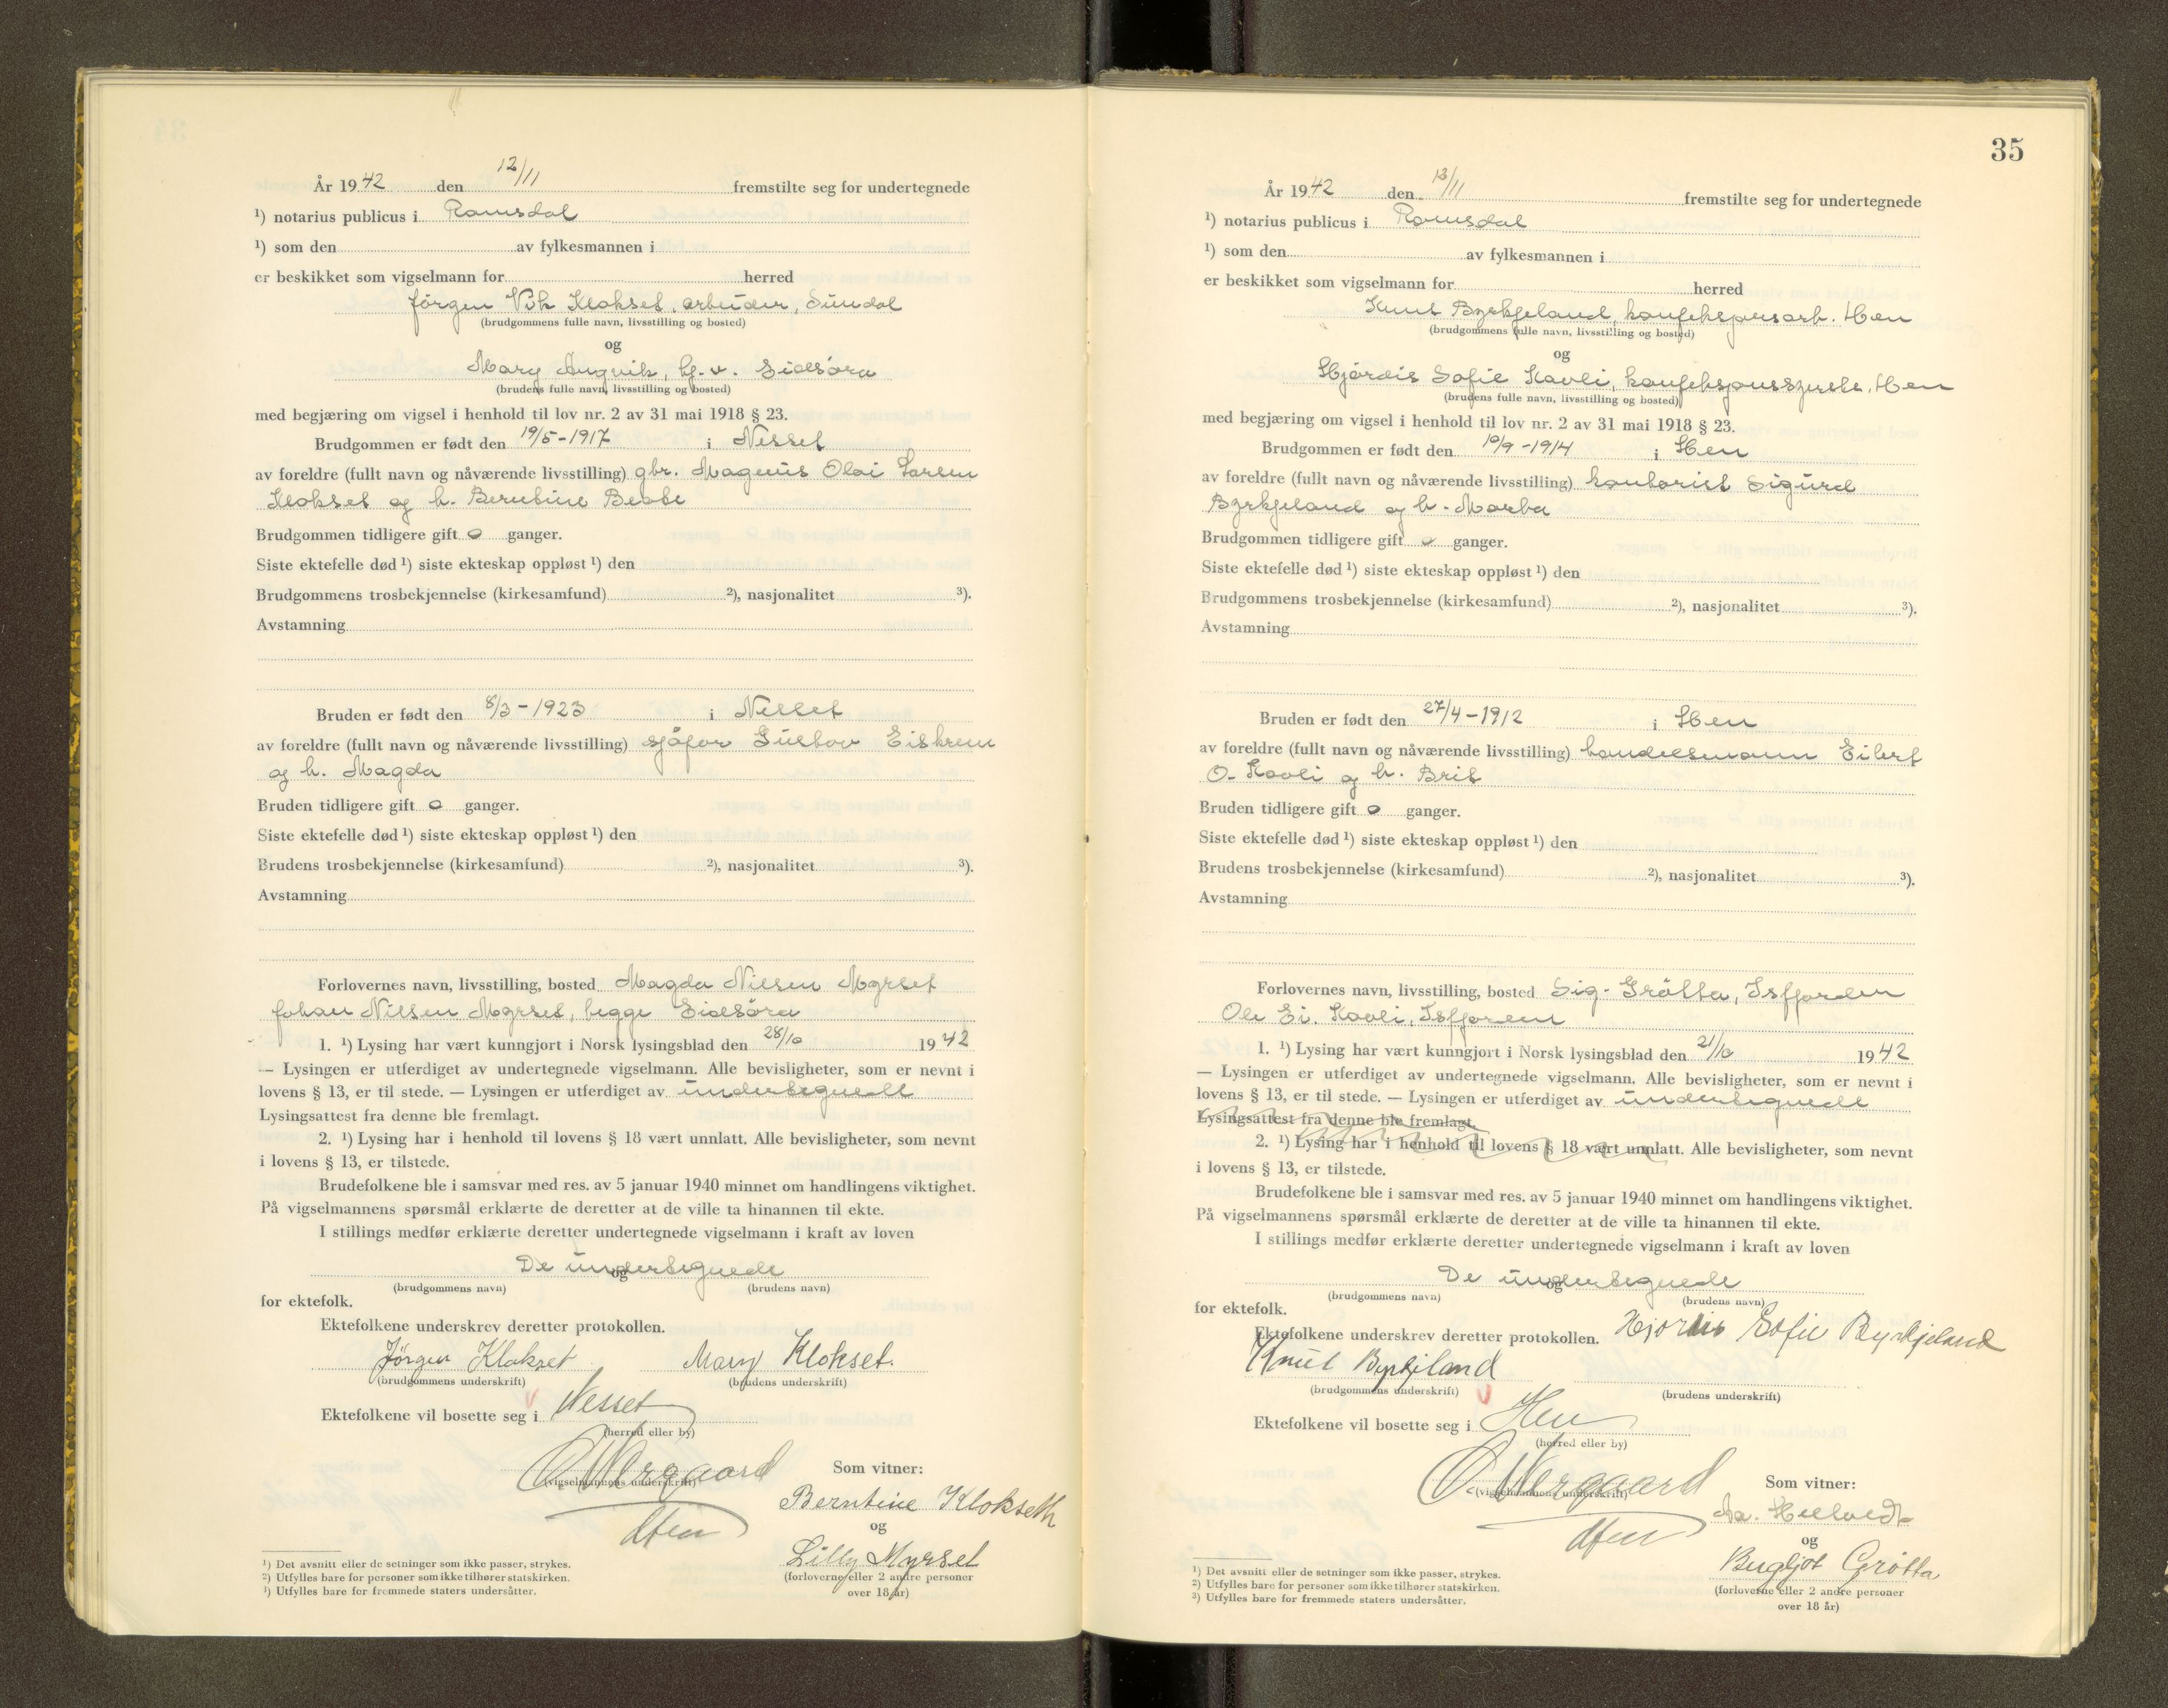 År 1942 den 12/11 fremstilte seg for undertegnede
¹) notarius publicus i Romsdal
¹) som den av fylkesmannen i
er beskikket som vigselmann for herred
Jörgen Vik Klokset, arbeider, Sundal
(brudgommens fulle navn, livsstilling og bosted)
og
Mary Angvik, hj.v. Eidsöra
(brudens fulle navn, livsstilling og bosted)
med begjæring om vigsel i henhold til lov nr. 2 av 31 mai 1918 § 23.
Brudgommen er født den 19/5-1917 i Nesset
av foreldre (fullt navn og nåværende livsstilling) gbr. Magnus Olai Larsen
Klokset og h. Berntine Beate
Brudgommen tidligere gift 0 ganger.
Siste ektefelle død ¹) siste ekteskap oppløst ¹) den
Brudgommens trosbekjennelse (kirkesamfund) ²), nasjonalitet ³).
Avstamning
Bruden er født den 8/3-1923 i Nesset
av foreldre (fullt navn og nåværende livsstilling) sjåfør Gustav Eiskrem
og h. Magda
Bruden tidligere gift 0 ganger.
Siste ektefelle død ¹) siste ekteskap oppløst ¹) den
Brudens trosbekjennelse (kirkesamfund) ²), nasjonalitet ³).
Avstamning
Forlovernes navn, livsstilling, bosted Magda Nilsen Myrset
Johan Nilsen Myrset, begge Eidsöra
1. ¹) Lysing har vært kunngjort i Norsk lysingsblad den 28/10 1942
— Lysingen er utferdiget av undertegnede vigselmann. Alle bevisligheter, som er nevnt i
lovens § 13, er til stede. — Lysingen er utferdiget av undertegnede
Lysingsattest fra denne ble fremlagt.
2. ¹) Lysing har i henhold til lovens § 18 vært unnlatt. Alle bevisligheter, som nevnt
i lovens § 13, er tilstede.
Brudefolkene ble i samsvar med res. av 5 januar 1940 minnet om handlingens viktighet.
På vigselmannens spørsmål erklærte de deretter at de ville ta hinannen til ekte.
I stillings medfør erklærte deretter undertegnede vigselmann i kraft av loven
De undertegnede
og
(brudgommens navn) (brudens navn)
for ektefolk.
Ektefolkene underskrev deretter protokollen.
Jörgen Klokset Mary Klokset.
(brudgommens underskrift) (brudens underskrift)
Ektefolkene vil bosette seg i Nesset
(herred eller by)
(vigselmannens underskrift)
Som vitner:
Berntine Klokseth
og
Lilly Myrset
(forloverne eller 2 andre personer
over 18 år)
¹) Det avsnitt eller de setninger som ikke passer, strykes.
²) Utfylles bare for personer som ikke tilhører statskirken.
³) Utfylles bare for fremmede staters undersåtter.
35
År 1942 den 13/11 fremstilte seg for undertegnede
¹) notarius publicus i Romsdal
¹) som den av fylkesmannen i
er beskikket som vigselmann for herred
Knut Byrkjeland, konfeksjonsarb. Hen
(brudgommens fulle navn, livsstilling og bosted)
og
Hjördis Sofie Kavli, konfeksjonssyerske, Hen
(brudens fulle navn, livsstilling og bosted)
med begjæring om vigsel i henhold til lov nr. 2 av 31 mai 1918 § 23.
Brudgommen er født den 10/9-1914 i Hen
av foreldre (fullt navn og nåværende livsstilling) kontorist Sigurd
Byrkjeland og h. Marta
Brudgommen tidligere gift 0 ganger.
Siste ektefelle død ¹) siste ekteskap oppløst ¹) den
Brudgommens trosbekjennelse (kirkesamfund) ²), nasjonalitet ³).
Avstamning
Bruden er født den 27/4-1912 i Hen
av foreldre (fullt navn og nåværende livsstilling) handelsmann Eilert
O. Kavli og h. Brit
Bruden tidligere gift 0 ganger.
Siste ektefelle død ¹) siste ekteskap oppløst ¹) den
Brudens trosbekjennelse (kirkesamfund) ²), nasjonalitet ³).
Avstamning
Forlovernes navn, livsstilling, bosted Sig. Grötta, Isfjorden
Ole Ei. Kavli, Isfjorden
1. ¹) Lysing har vært kunngjort i Norsk lysingsblad den 21/10 1942
— Lysingen er utferdiget av undertegnede vigselmann. Alle bevisligheter, som er nevnt i
lovens § 13, er til stede. — Lysingen er utferdiget av undertegnede
Lysingsattest fra denne ble fremlagt.
2. ¹) Lysing har i henhold til lovens § 18 vært unnlatt. Alle bevisligheter, som nevnt
i lovens § 13, er tilstede.
Brudefolkene ble i samsvar med res. av 5 januar 1940 minnet om handlingens viktighet.
På vigselmannens spørsmål erklærte de deretter at de ville ta hinannen til ekte.
I stillings medfør erklærte deretter undertegnede vigselmann i kraft av loven
De undertegnede
og
(brudgommens navn) (brudens navn)
for ektefolk.
Ektefolkene underskrev deretter protokollen. Hjördis Sofie Byrkjeland
Knut Byrkjeland
(brudgommens underskrift) (brudens underskrift)
Ektefolkene vil bosette seg i Hen
(herred eller by)
(vigselmannens underskrift)
Som vitner:
og
Bergljot Grötta
(forloverne eller 2 andre personer
over 18 år)
¹) Det avsnitt eller de setninger som ikke passer, strykes.
²) Utfylles bare for personer som ikke tilhører statskirken.
³) Utfylles bare for fremmede staters undersåtter.